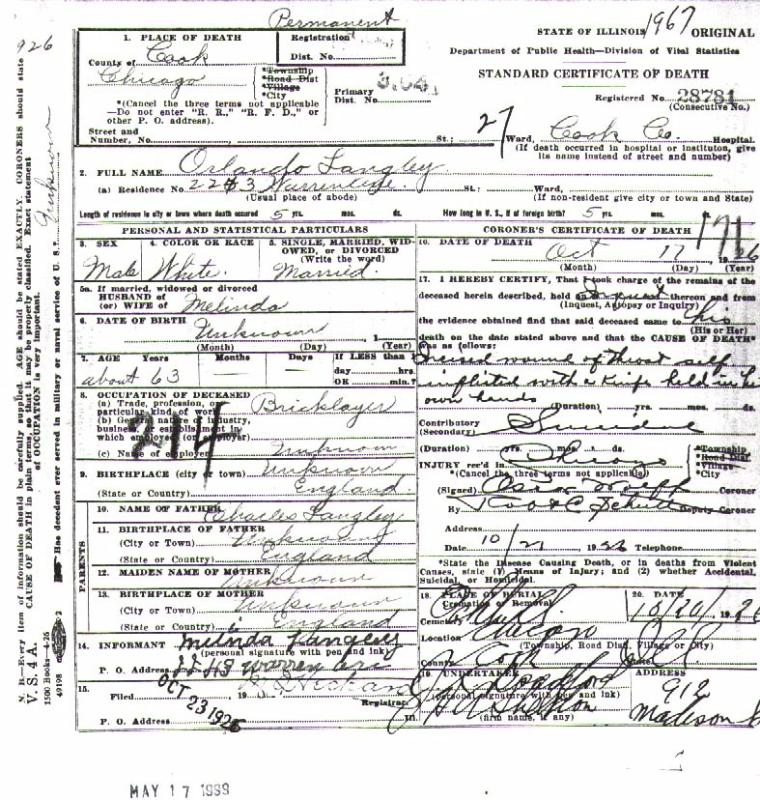 Permanent
1967
STATE OF ILLINOIS ORIGINAL
Department of Public Health—Division of Vital Statistics
STANDARD CERTIFICATE OF DEATH
Registered No. 28781
(Consecutive No.)
1. PLACE OF DEATH
Registration
Dist. No.
County of Cook
Chicago
*Township
*Road Dist
*Village
*City
Primary
Dist. No.
*(Cancel the three terms not applicable
—Do not enter "R. R.," "R. F. D.," or
other P. O. address).
Street and
Number, No. St.; 27 Ward, Cook Co Hospital.
(If death occurred in hospital or institution, give
its name instead of street and number)
2. FULL NAME Orlando Langley
(a) Residence No. 2243 Warren Ave. St.; Ward,
(Usual place of abode) (If non-resident give city or town and State)
Length of residence in city or town where death occurred 5 yrs. mos. ds. How long in U. S., if of foreign birth? 5 yrs. mos. ds.
PERSONAL AND STATISTICAL PARTICULARS
3. SEX
Male
4. COLOR OR RACE
White
5. SINGLE, MARRIED, WIDOWED, or DIVORCED
(Write the word)
Married
5a. If married, widowed or divorced
HUSBAND of
(or) WIFE of Melinda
6. DATE OF BIRTH Unknown 1
(Month) (Day) (Year)
7. AGE Years Months Days If LESS than
day hrs.
OR min.?
about 63
8. OCCUPATION OF DECEASED
(a) Trade, profession, or
particular kind of work Bricklayer
(b) General nature of industry,
business, or establishment in
which employed (or employer)
(c) Name of employer Unknown
214
9. BIRTHPLACE (city or town) Unknown
(State or Country) England
PARENTS
10. NAME OF FATHER Charles Langley
11. BIRTHPLACE OF FATHER
(City or Town) Unknown
(State or Country) England
12. MAIDEN NAME OF MOTHER Unknown
13. BIRTHPLACE OF MOTHER
(City or Town) Unknown
(State or Country) England
14. INFORMANT Melinda Langley
(personal signature with pen and ink)
P. O. Address 2243 Warren Ave
15.
Filed OCT 23 1926 19
Registrar
P. O. Address
CORONER'S CERTIFICATE OF DEATH
171
16. DATE OF DEATH Oct 17 1926
(Month) (Day) (Year)
17. I HEREBY CERTIFY, That I took charge of the remains of the
deceased herein described, held an Inquest thereon and from
(Inquest, Autopsy or Inquiry)
the evidence obtained find that said deceased came to his
(His or Her)
death on the date stated above and that the CAUSE OF DEATH*
was as follows:
Incised wound of throat self
inflicted with a knife held in his
own hands
(Duration) yrs. mos. ds.
Contributory
(Secondary) Suicide
(Duration) yrs. mos. ds.
INJURY rec'd in Chicago
*Township
*Road Dist
*Village
*City
*(Cancel the three terms not applicable)
(Signed) Oscar Wolff Coroner
By Deputy Coroner
Address
Date 10/21 1926 Telephone
*State the Disease Causing Death, or in deaths from Violent
Causes, state (1) Means of Injury; and (2) whether Accidental,
Suicidal, or Homicidal.
18. PLACE OF BURIAL
Cremation or Removal
Cemetery
20. DATE
10/20/1926
Location
(Township, Road Dist., Village or City)
County Cook State Ill
19. UNDERTAKER
(personal signature with pen and ink)
(firm name, if any)
ADDRESS
912
Madison St
N. B.—Every item of information should be carefully supplied. AGE should be stated EXACTLY. CORONERS should state
CAUSE OF DEATH in plain terms, so that it may be properly classified. Exact statement
of OCCUPATION is very important.
V. S. 4 A.
Has decedent ever served in military or naval service of U. S.? Unknown
926
MAY 17 1999